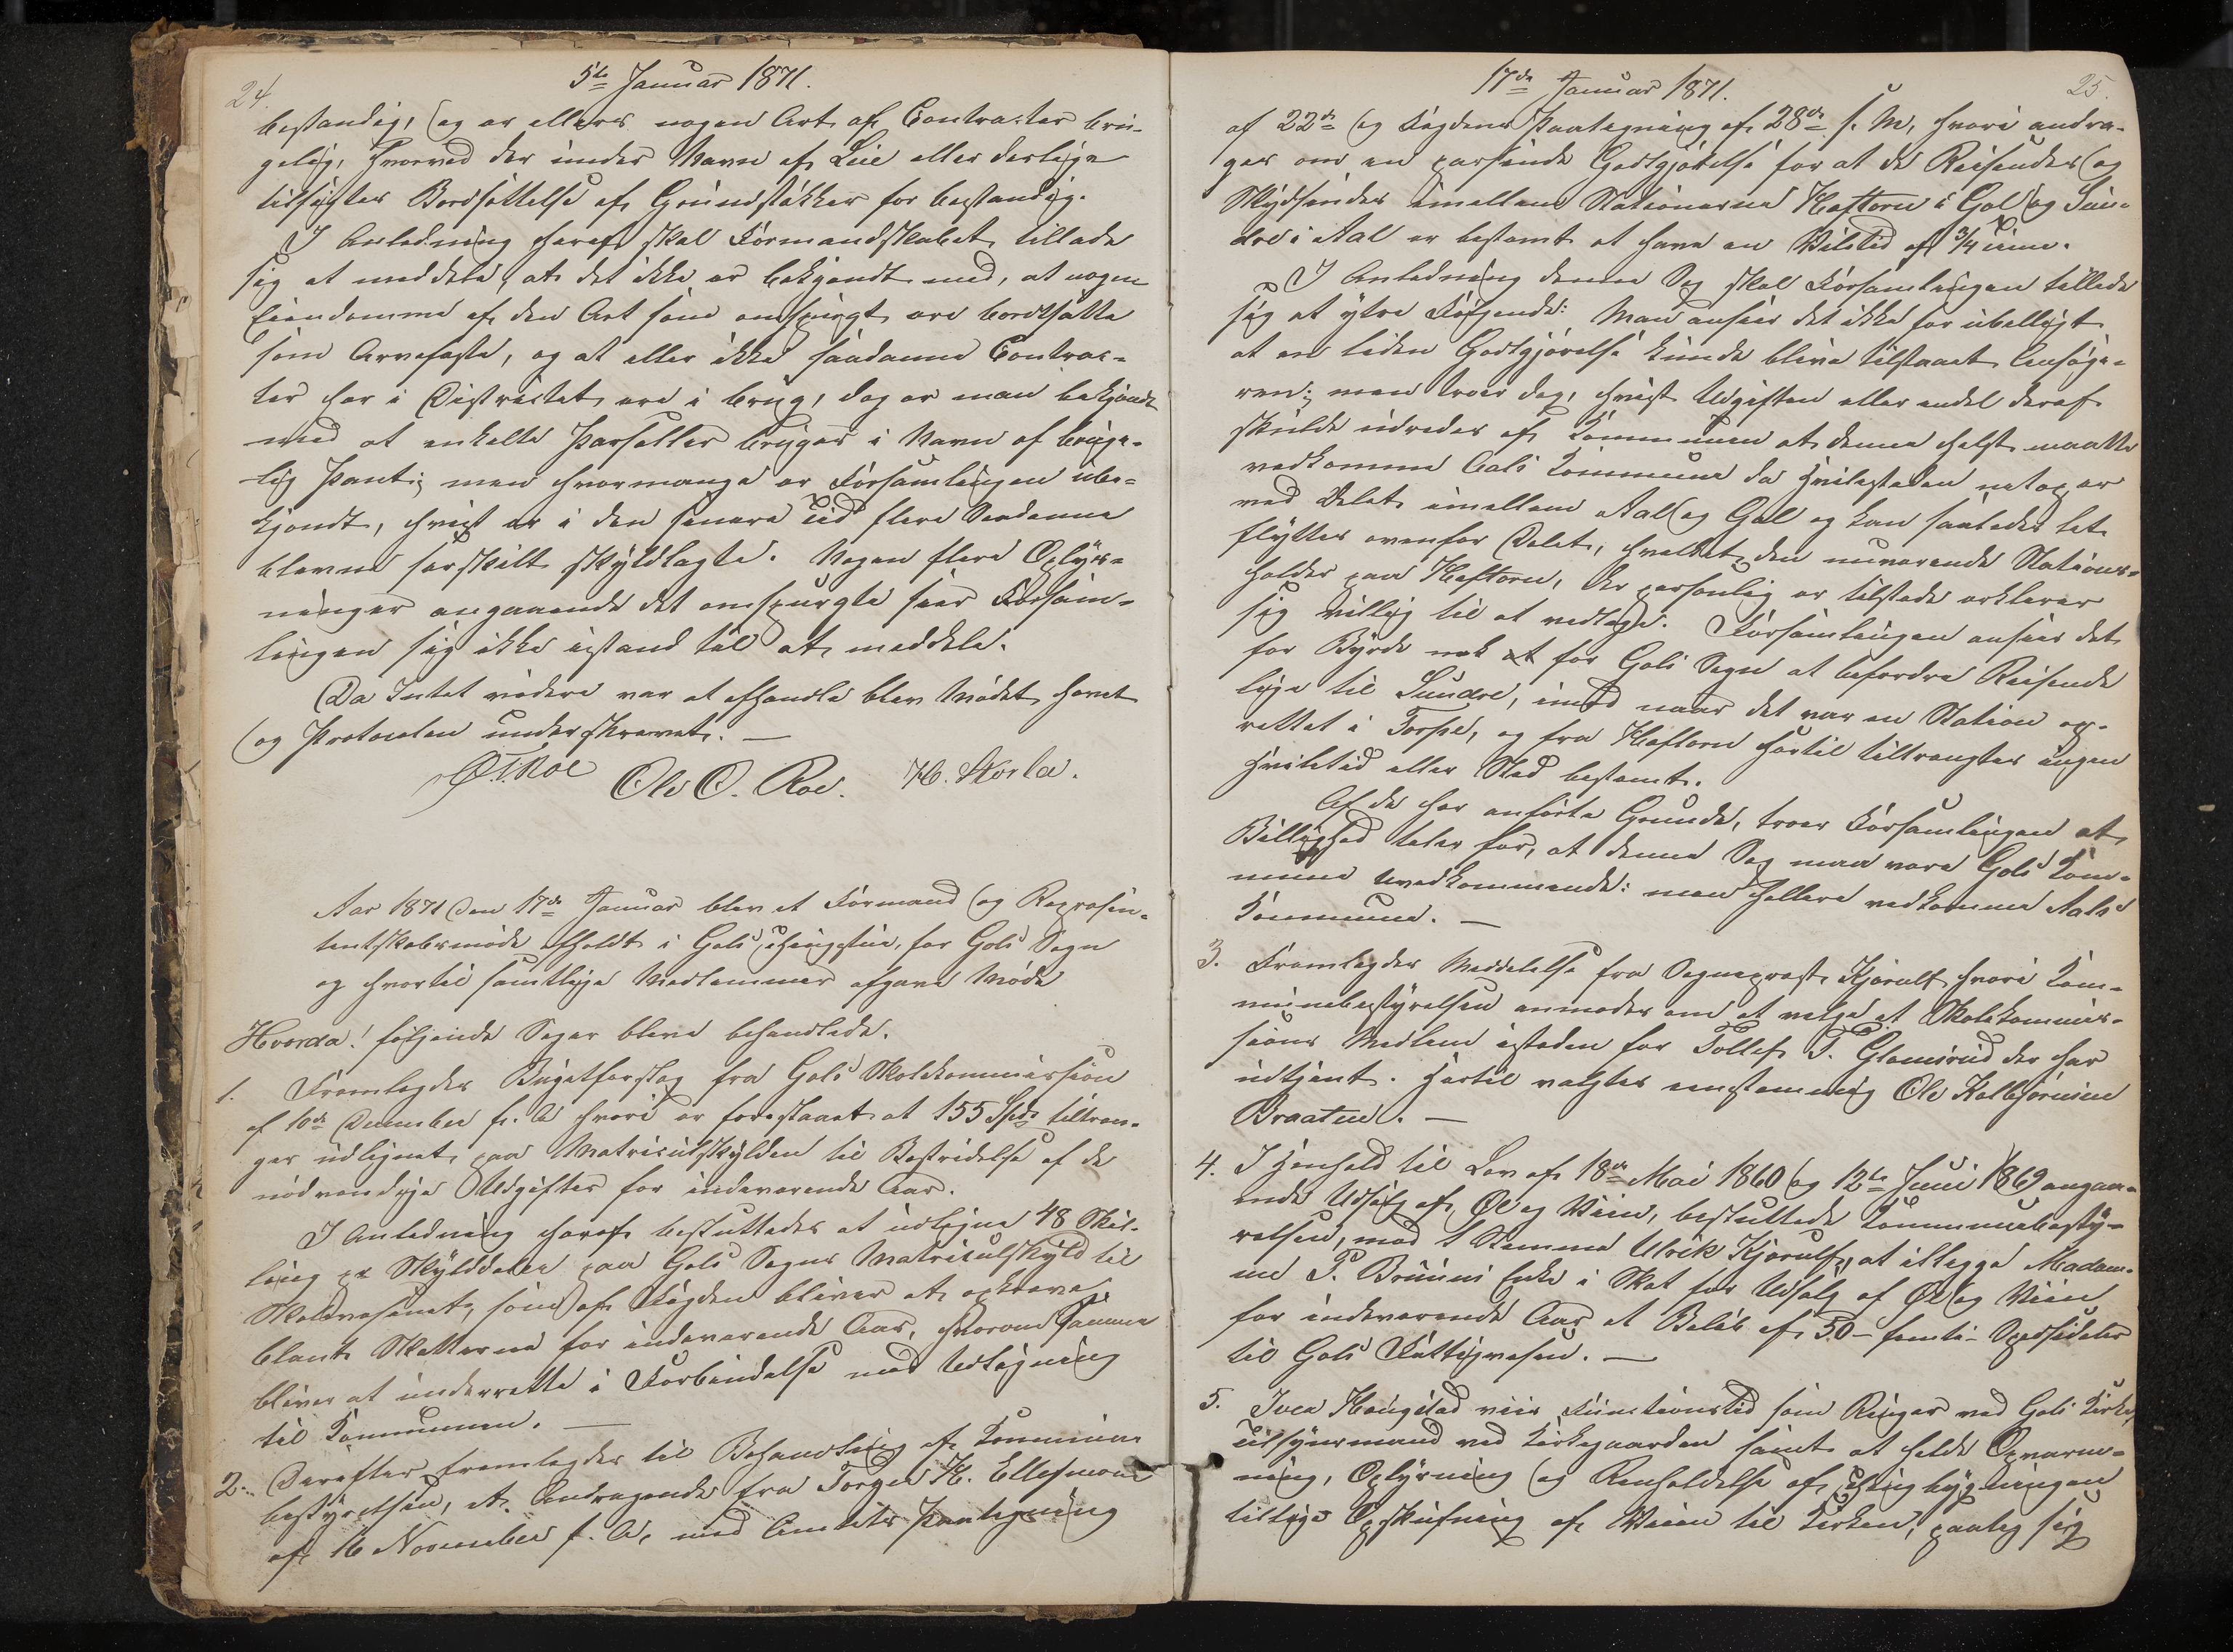 24.
5te Januar 1871.
bestandig, og er ellers nogen Art af Contracter bru-
gelig, hvorved der under Navn af Leie eller deslige
tilsigter Bortsættelse af Grundstykker for bestandig.
I Anledning heraf skal Formandskabet tillade
sig at meddele, at det ikke er bekjendt med, at nogen
Eiendomme af den Art som omspurgt ere bortsatte
som Arvefæste, og at eller ikke saadanne Contrac-
ter her i Districtet ere i brug, dog er man bekjendt
med at enkelte Parseller bruges i Navn af bruge-
lig Pant; men hvormange er Forsamlingen ube-
kjendt, hvist er i den senere Tid flere Saadanne
blevne særskilt skyldlagte. Nogen flere Oplys-
ninger angaaende det omspurgte seer Forsam-
lingen sig ikke istand til at meddele.
Da Intet videre var at afhandle blev Mødet hævet
og Protocolen underskrevet. —
O.T. Roe Ole O. Roe. H. Storla.
Aar 1871 den 17de Januar blev et Formand og Repræsen-
tentskabsmøde afholdt i Gols Thingstue, for Gols Sogn
og hvortil samtlige Medlemmer afgave Møde
Hvorda! følgende Sager bleve behandlede.
1. Fremlagdes Bugetforslag fra Gols Skolekommission
af 10de December f. A hvori er foreslaaet at 155 Spd tiltræn-
ges udlignet paa Matriculskylden til Bestridelse af de
nødvendige Udgifter for indeværende Aar.
I Anledning heraf besluttedes at udligne 48 Skil-
ling pr Skylddaler paa Gols Sogns Matriculskyld til
Skolevæsenet, som af Fogden bliver at opkræve
blandt Skatterne for indeværende Aar, hvorom Samme
bliver at underrette i Forbindelse med Udligning
til Kommunen. —
2. Derefter fremlagdes til Behandling af Kommune-
bestyrelsen, et Andragende fra Torger K. Ellefsmoen
af 16 November f. A, med Amtets Paategning
17de Januar 1871.
25.
af 22de og Fogdens Paategning af 28de s. M, hvori andra-
ges om en passende Godtgjørelse for at de Reisendes og
Skydsendes imellem Stationerne Heftorn i Gol og Sun-
dre i Aal er bestemt at have en Hviletid af 3/4 time.
I Anledning denne Sag skal Forsamlingen tillade
sig at ytre Følgende: Man anseer det ikke for ubilligt
at en liden Godtgjørelse kunde blive tilstaaet Ansøge-
ren; men troer dog, hvist Udgiften eller endel deraf
skulde udredes af Kommunen at denne helst maatte
vedkomme Aals Kommune da Hvilestedet netop er
ved Delet imellem Aal og Gol og kan saaledes let
flyttes ovenfor Delet, hvilket den nuværende Stations-
holder paa Heftorn, der personlig er tilstede erklærer
sig villig til at vedtage. Forsamlingen anseer det
for Byrde nok for Gols Sogn at befordre Reisende
lige til Sundre, imod naar det var en Station op-
rettet i Torpe, og fra Heftorn hertil tiltrængtes ingen
Hviletid eller Sted bestemt.
Af de her anførte Grunde, troer Forsamlingen at
Billighed taler for, at denne Sag maa være Gols Kom-
mune uvedkommende: men hellere vedkomme Aals
Kommune. —
3. Fremlagdes Meddelelse fra Sogneprest Kjerulf hvori Kom-
munebestyrelsen anmodes om at vælge et Skolekommis-
sions Medlem istedet for Tollef T. Glomsrud der har
udtjent. Hertil valgtes eenstemmig Ole Halbjørnsen
Braaten. —
4. I Henhold til Lov af 18de Mai 1860 og 12te Juni 1869 angaa-
ende Udsalg af Øl og Viin, besluttede Kommunebesty-
relsen, mod 1 Stemme Ulrik Kjerulf, at ilægge Madam-
me P. Bruuns Enke i Skat for Udsalg af Øl og Viin
for indeværende Aar et Beløb af 50 – femti – Speciedaler
til Gols Fattigvæsen. —
5. Iver Haugstad viis Functionstid som Ringer ved Gols Kirke,
Tilsynsmand ved Kirkegaarden samt at holde Opvarm-
ning, Oplysning og Renholdelse af Thingbygningen
tillige Opskufning af Veien til Kirken, paatog sig